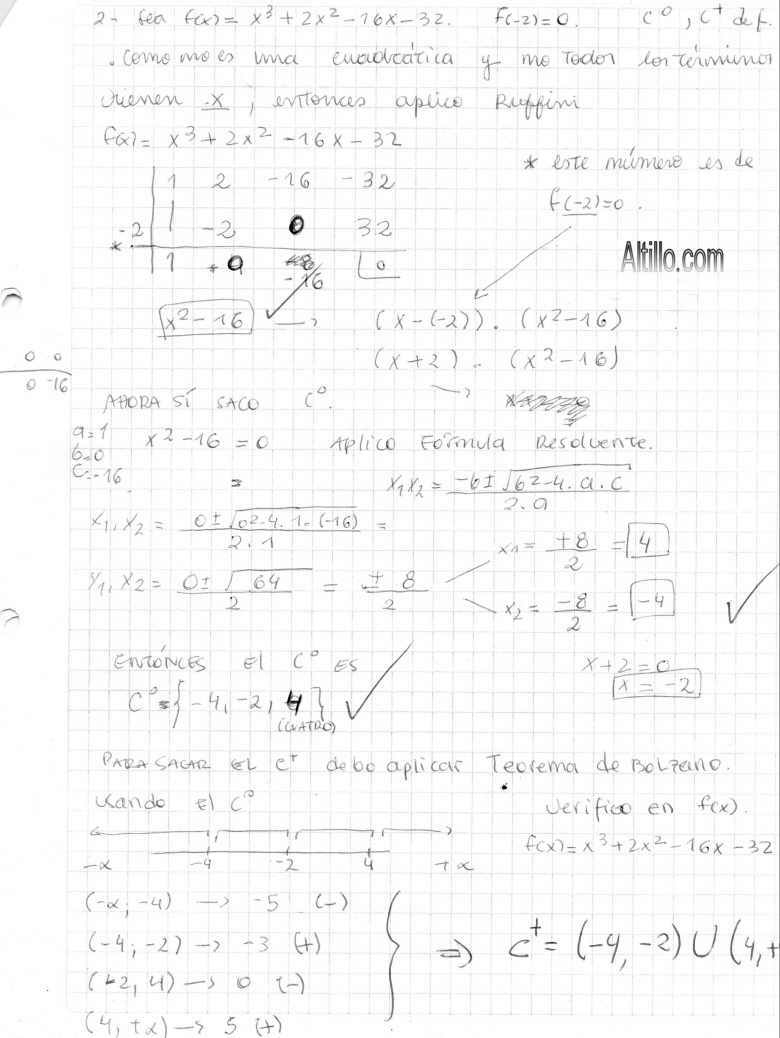 2- Sea f(x) = x³ + 2x² - 16x - 32. f(-2) = 0. C⁰, C⁺ def.
. Como no es una cuadrática y no todos los términos
tienen x, entonces aplico Ruffini
f(x) = x³ + 2x² - 16x - 32
* este número es de
f(-2) = 0.
1 2 -16 -32
-2 -2 0 32
* 1 0 -16 0
Altillo.com
x² - 16 → (x - (-2)) . (x² - 16)
(x + 2) . (x² - 16)
→
0 0
0 -16
AHORA SÍ SACO C⁰.
a = 1
b = 0
c = -16
x² - 16 = 0 Aplico Fórmula Resolvente.
x₁ x₂ = -b ± √b² - 4 . a . c / 2 . a
x₁, x₂ = 0 ± √0² - 4 . 1 . (-16) / 2 . 1 =
x₁, x₂ = 0 ± √64 / 2 = ± 8 / 2
x₁ = +8 / 2 = 4
x₂ = -8 / 2 = -4
x + 2 = 0
x = -2
ENTÓNCES El C⁰ ES
C⁰ = { -4, -2, 4 }
(CUATRO)
PARA SACAR EL C⁺ debo aplicar Teorema de Bolzano.
Usando el C⁰ Verifico en f(x).
f(x) = x³ + 2x² - 16x - 32
-∝ -4 -2 4 +∝
(-∝; -4) → -5 (-)
(-4; -2) → -3 (+)
(-2, 4) → 0 (-)
(4, +∝) → 5 (+)
⇒ C⁺ = (-4, -2) ∪ (4, +